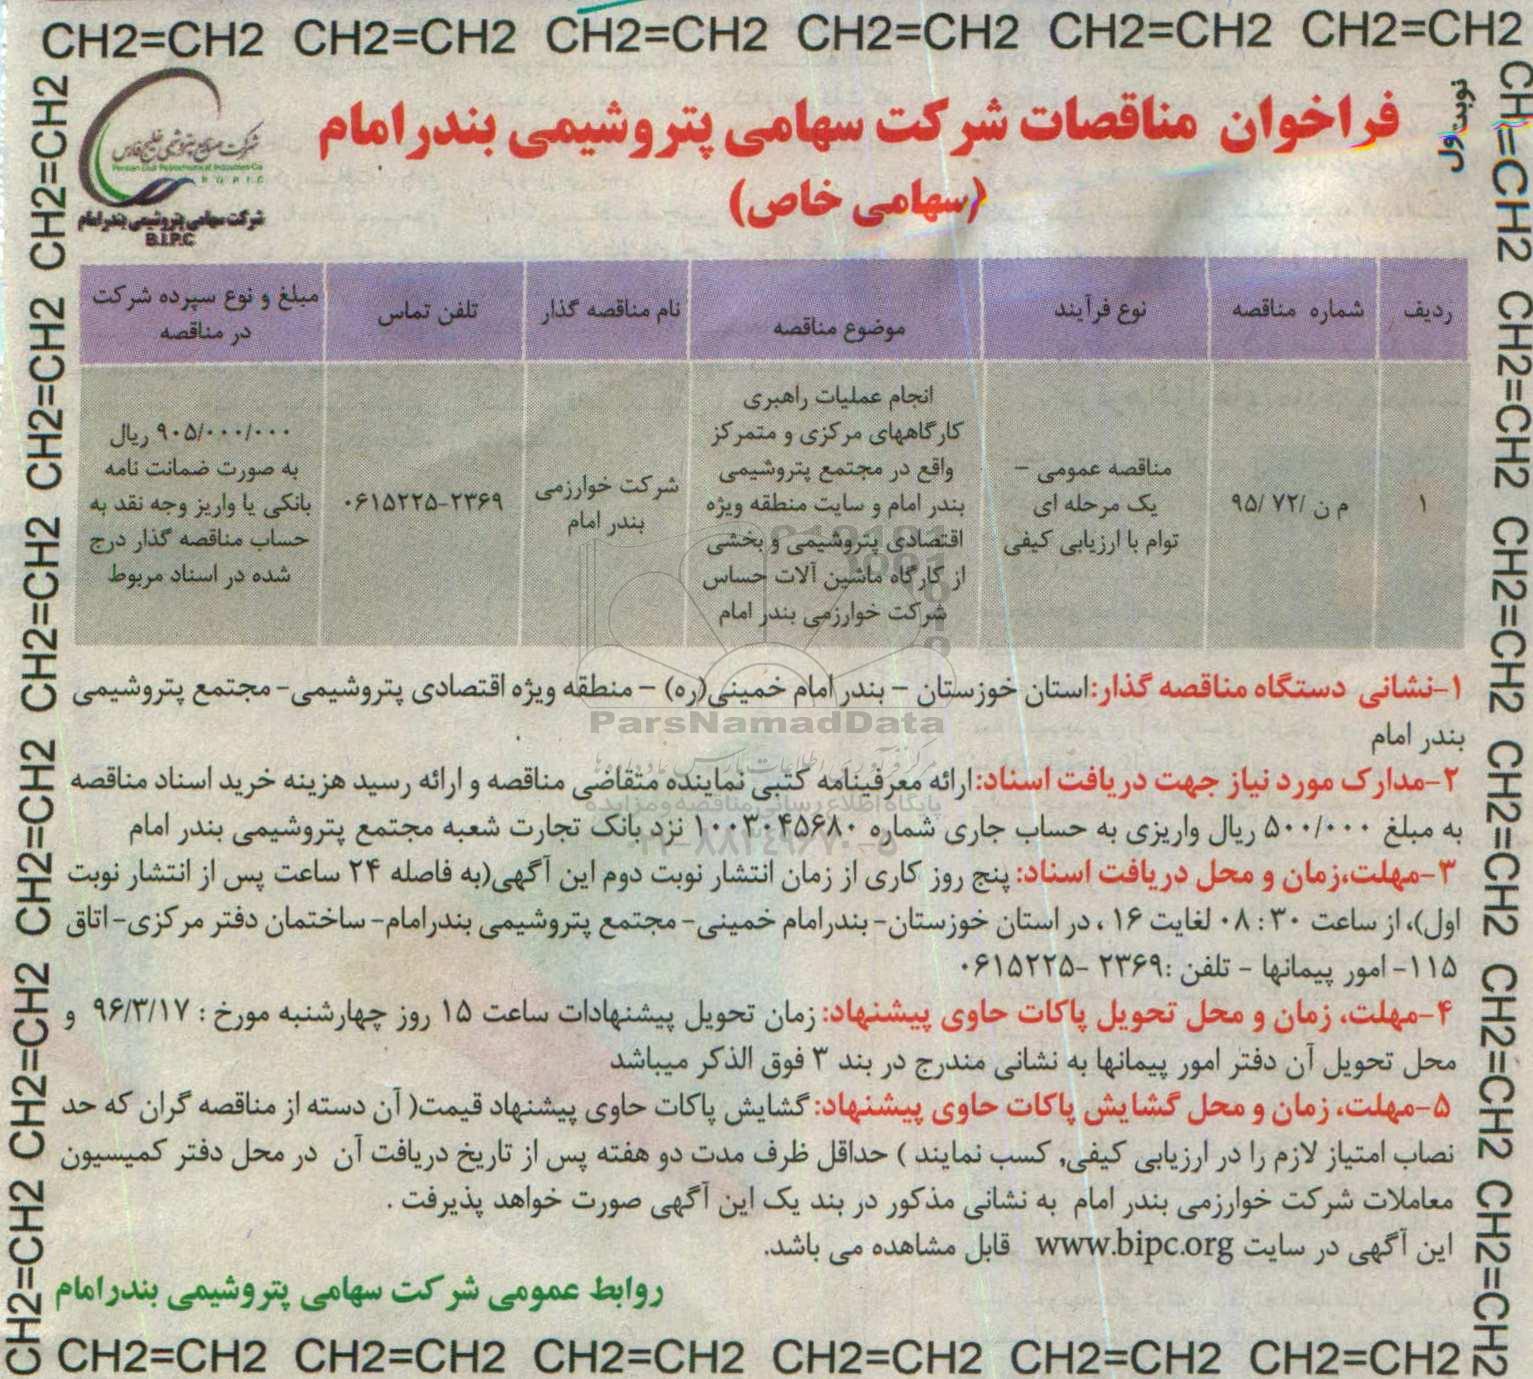 CH2=CH2 CH2=CH2 CH2=CH2 CH2=CH2 CH2=CH2 CH2=CH2
نوبت اول
فراخوان مناقصات شرکت سهامی پتروشیمی بندر امام
(سهامی خاص)
شرکت صنایع پتروشیمی خلیج فارس
Persian Gulf Petrochemical Industries Co
P G P I C
شرکت سهامی پتروشیمی بندر امام
B.I.P.C
ردیف
شماره مناقصه
نوع فرآیند
موضوع مناقصه
نام مناقصه گذار
تلفن تماس
مبلغ و نوع سپرده شرکت
در مناقصه
۱
م ن /۷۲ /۹۵
مناقصه عمومی –
یک مرحله ای
توام با ارزیابی کیفی
انجام عملیات راهبری
کارگاههای مرکزی و متمرکز
واقع در مجتمع پتروشیمی
بندر امام و سایت منطقه ویژه
اقتصادی پتروشیمی و بخشی
از کارگاه ماشین آلات حساس
شرکت خوارزمی بندر امام
شرکت خوارزمی
بندر امام
۰۶۱۵۲۲۵-۲۳۶۹
۹۰۵/۰۰۰/۰۰۰ ریال
به صورت ضمانت نامه
بانکی یا واریز وجه نقد به
حساب مناقصه گذار درج
شده در اسناد مربوط
۱-نشانی دستگاه مناقصه گذار:استان خوزستان – بندر امام خمینی(ره) – منطقه ویژه اقتصادی پتروشیمی- مجتمع پتروشیمی
بندر امام
۲-مدارک مورد نیاز جهت دریافت اسناد:ارائه معرفینامه کتبی نماینده متقاضی مناقصه و ارائه رسید هزینه خرید اسناد مناقصه
به مبلغ ۵۰۰/۰۰۰ ریال واریزی به حساب جاری شماره ۱۰۰۳۰۴۵۶۸۰ نزد بانک تجارت شعبه مجتمع پتروشیمی بندر امام
۳-مهلت،زمان و محل دریافت اسناد: پنج روز کاری از زمان انتشار نوبت دوم این آگهی(به فاصله ۲۴ ساعت پس از انتشار نوبت
اول)، از ساعت ۳۰ : ۰۸ لغایت ۱۶ ، در استان خوزستان- بندرامام خمینی- مجتمع پتروشیمی بندرامام- ساختمان دفتر مرکزی- اتاق
۱۱۵- امور پیمانها - تلفن :۲۳۶۹ -۰۶۱۵۲۲۵
۴-مهلت، زمان و محل تحویل پاکات حاوی پیشنهاد: زمان تحویل پیشنهادات ساعت ۱۵ روز چهارشنبه مورخ : ۹۶/۳/۱۷ و
محل تحویل آن دفتر امور پیمانها به نشانی مندرج در بند ۳ فوق الذکر میباشد
۵-مهلت، زمان و محل گشایش پاکات حاوی پیشنهاد: گشایش پاکات حاوی پیشنهاد قیمت( آن دسته از مناقصه گران که حد
نصاب امتیاز لازم را در ارزیابی کیفی, کسب نمایند ) حداقل ظرف مدت دو هفته پس از تاریخ دریافت آن در محل دفتر کمیسیون
معاملات شرکت خوارزمی بندر امام به نشانی مذکور در بند یک این آگهی صورت خواهد پذیرفت .
این آگهی در سایت www.bipc.org قابل مشاهده می باشد.
روابط عمومی شرکت سهامی پتروشیمی بندر امام
ParsNamadData
پایگاه اطلاع رسانی مناقصه و مزایده
CH2=CH2 CH2=CH2 CH2=CH2 CH2=CH2 CH2=CH2 CH2=CH2
CH2=CH2 CH2=CH2 CH2=CH2 CH2=CH2 CH2=CH2 CH2=CH2
CH2=CH2 CH2=CH2 CH2=CH2 CH2=CH2 CH2=CH2 CH2=CH2